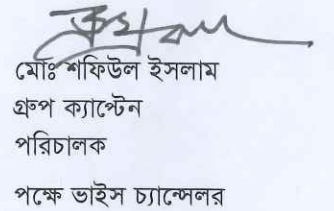 মোঃ শফিউল ইসলাম
গ্রুপ ক্যাপ্টেন
পরিচালক
পক্ষে ভাইস চ্যান্সেলর